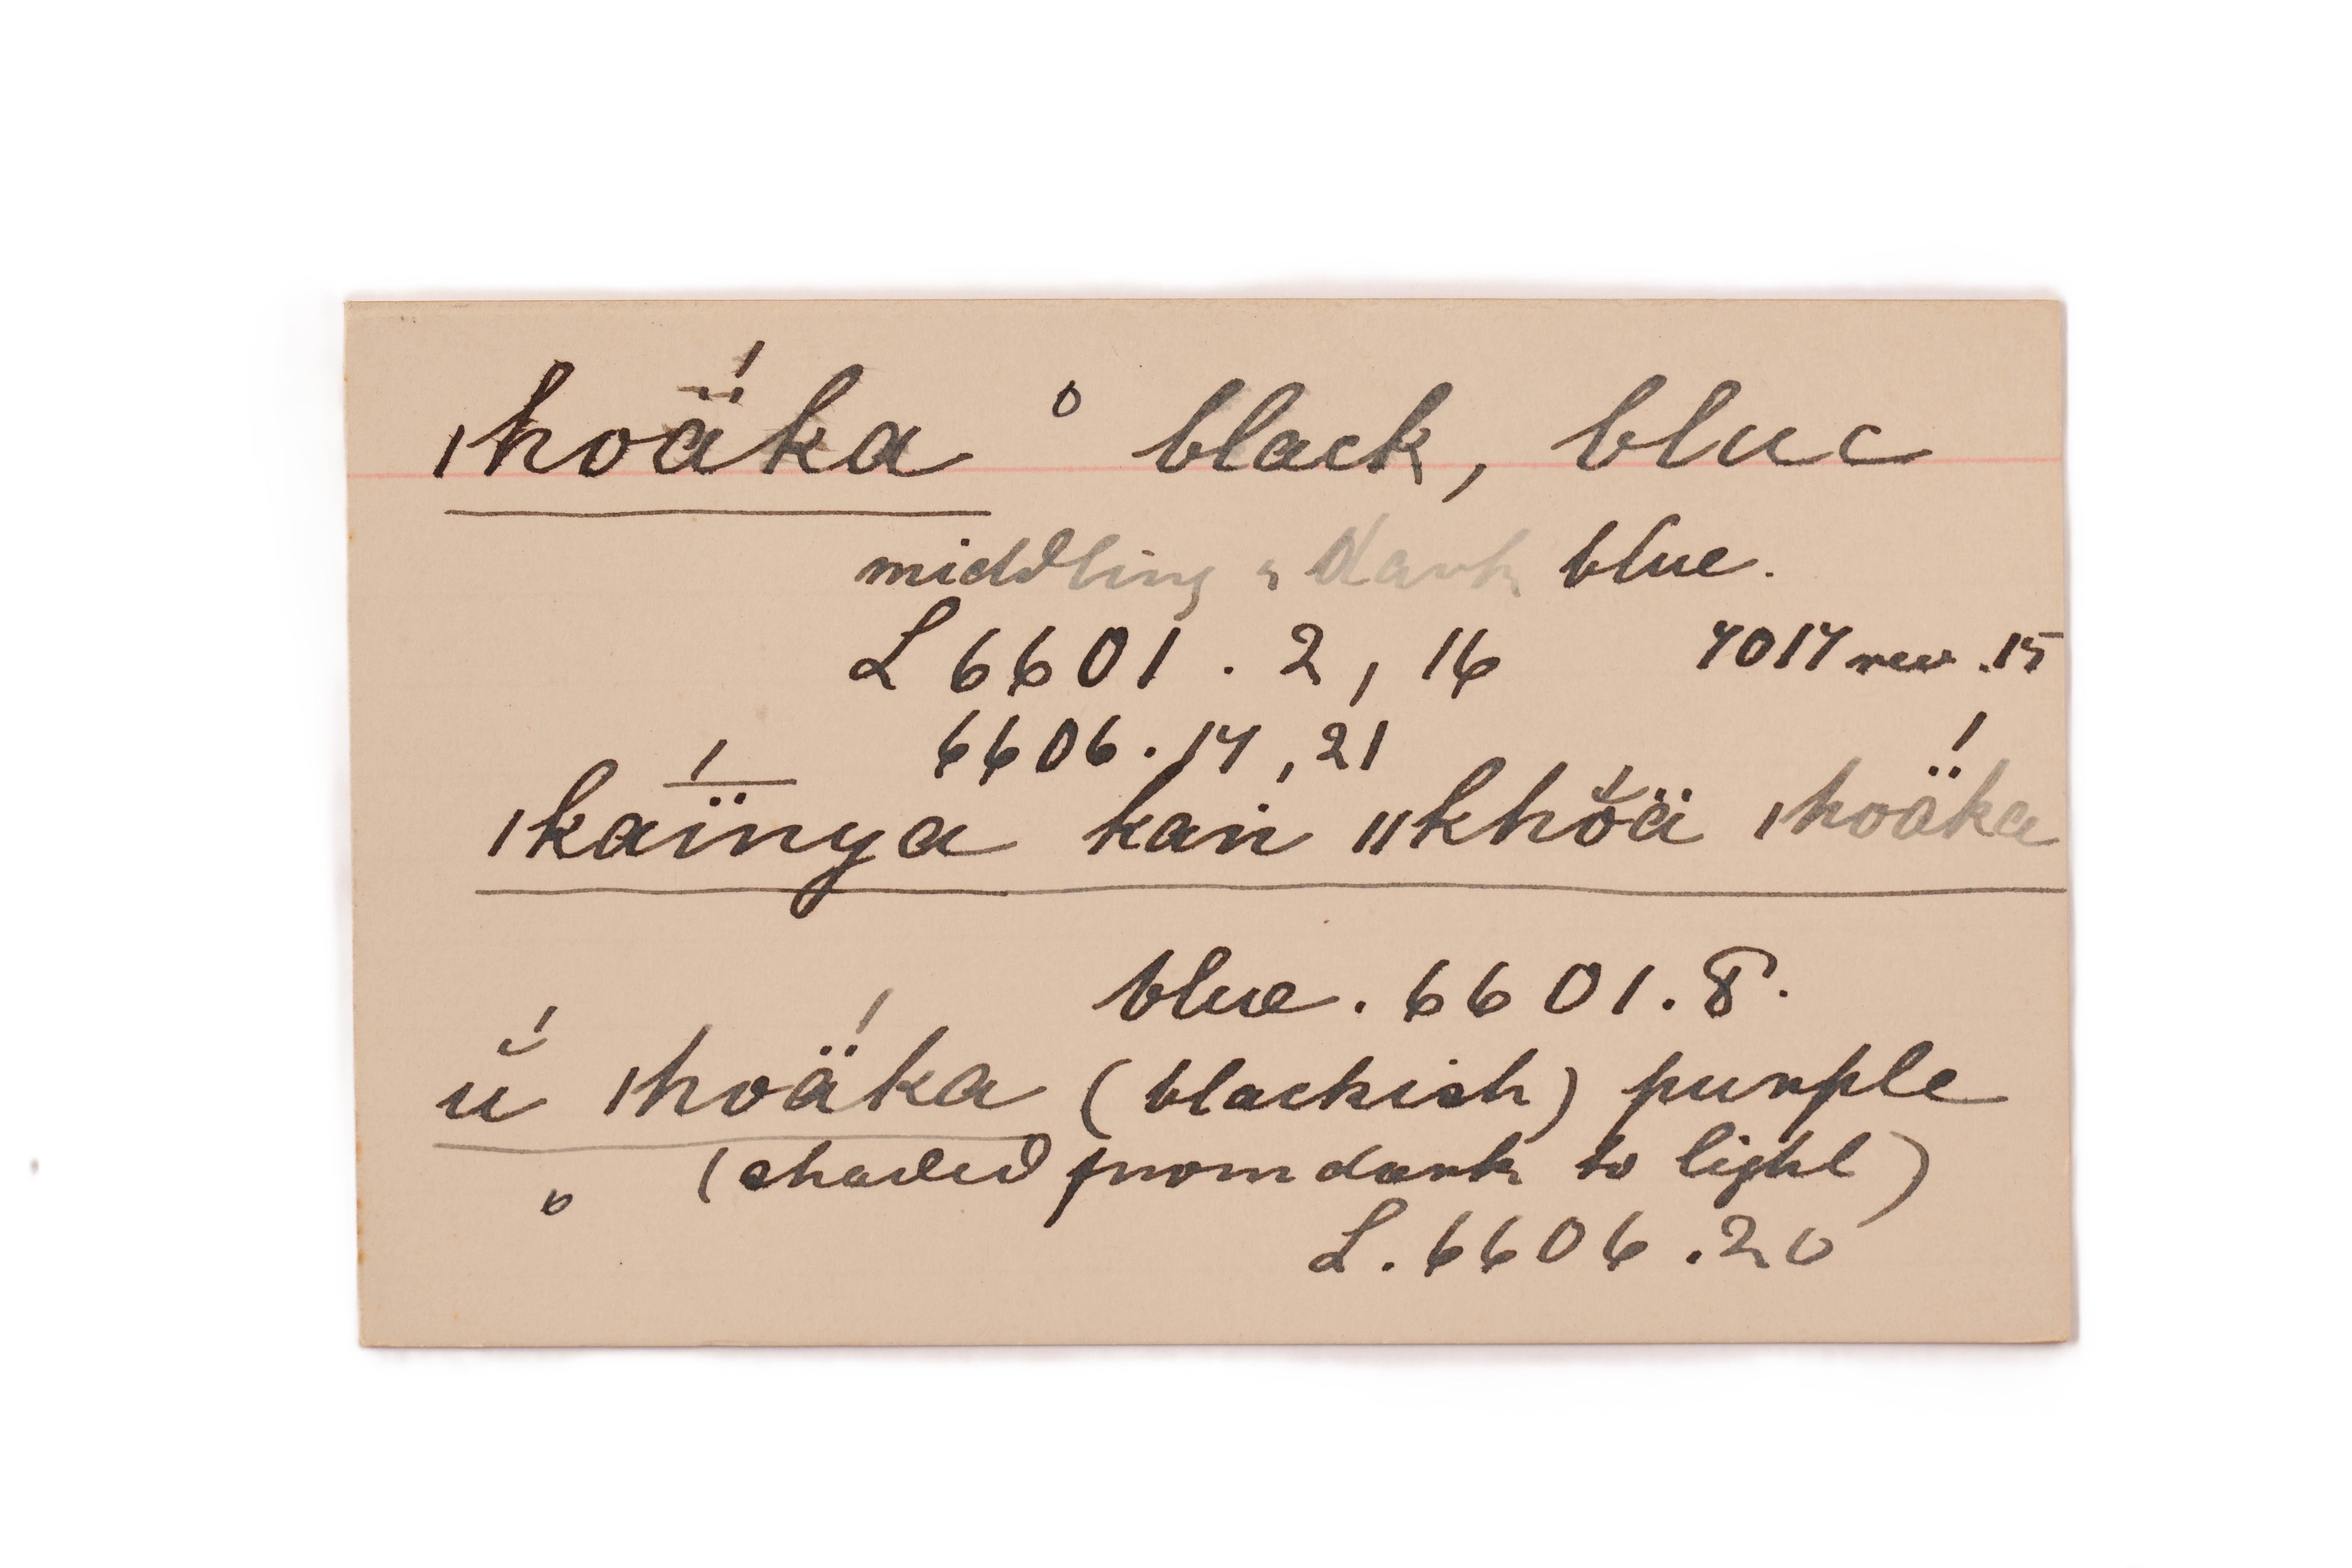 ǀhoä́ka ° black, blue
middling & dark blue.
L 6601 . 2, 16 7017 rev. 15
6606. 17, 21
ǀkaï̄́nya kaṅ ǁkhŏ́ä ǀhoä́ka
blue. 6601. 8.
ŭ́ ǀhoä́ka (blackish) purple
° (shaded from dark to light)
L. 6606 . 20